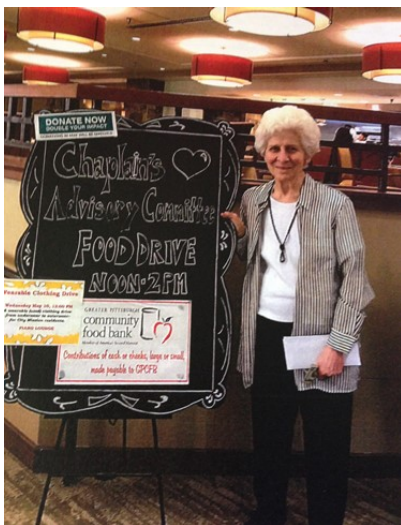 DONATE NOW
DOUBLE YOUR IMPACT
Chaplain's
Advisory Committee
FOOD DRIVE
NOON-2PM
Wearable Clothing Drive
Wednesday May
FOOD LOUNGE
GREATER PITTSBURGH
community
food bank
Contributions of cash or checks, large or small,
made payable to GPCFB